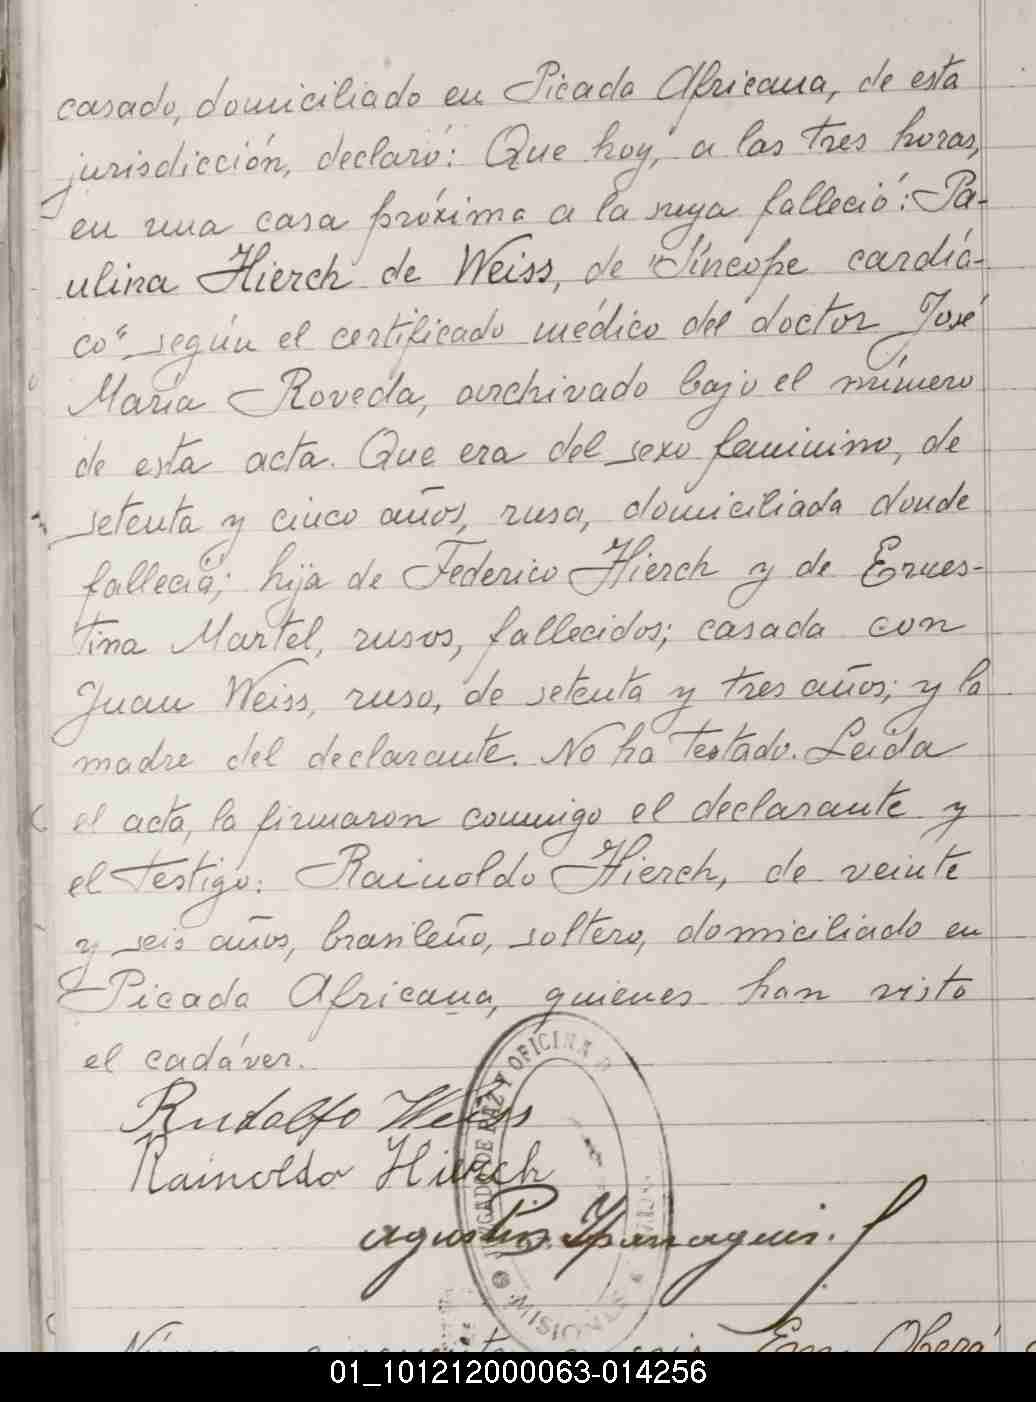 casado, domiciliado en Picada Africana, de esta
jurisdicción, declaró: Que hoy, a las tres horas,
en una casa próxima a la suya falleció: Pa-
ulina Hierch de Weiss, de "Síncope cardía-
co" según el certificado médico del doctor José
María Roveda, archivado bajo el número
de esta acta. Que era del sexo femenino, de
setenta y cinco años, rusa, domiciliada donde
falleció; hija de Federico Hierch y de Ernes-
tina Martel, rusos, fallecidos; casada con
Juan Weiss, ruso, de setenta y tres años; y la
madre del declarante. No ha testado. Leída
el acta, la firmaron conmigo el declarante y
el testigo: Rainoldo Hierch, de veinte
y seis años, brasileño, soltero, domiciliado en
Picada Africana, quienes han visto
el cadáver.
Rudolfo Weiss
Rainoldo Hierch
JUZGADO DE PAZ Y OFICINA D
MISIONES
En Oberá
01_101212000063-014256